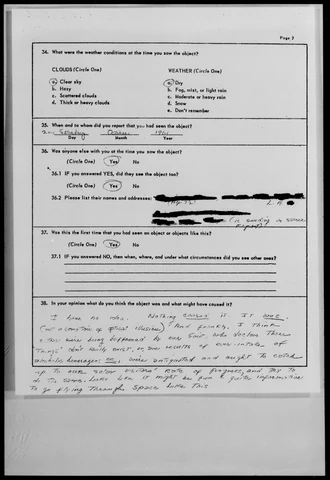 Page 7
34. What were the weather conditions at the time you saw the object?
CLOUDS (Circle One) WEATHER (Circle One)
a. Clear sky a. Dry
b. Hazy b. Fog, mist, or light rain
c. Scattered clouds c. Moderate or heavy rain
d. Thick or heavy clouds d. Snow
e. Don't remember
35. When and to whom did you report that you had seen the object?
Day Month Year
36. Was anyone else with you at the time you saw the object?
(Circle One) Yes No
36.1 IF you answered YES, did they see the object too?
(Circle One) Yes No
36.2 Please list their names and addresses:
37. Was this the first time that you had seen an object or objects like this?
(Circle One) Yes No
37.1 IF you answered NO, then when, where, and under what circumstances did you see other ones?
38. In your opinion what do you think the object was and what might have caused it?
I have no idea. Nothing caused it. It was.
(not a condition of optical illusion) And frankly, I think
"Things" don't really exist, or, are results of over-intake of
up to our solar visitors' rate of progress, and try to
do the same. Looks like it might be fun &
to go flying through space like this